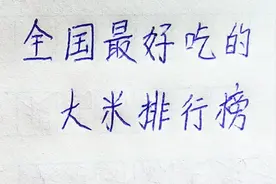 全国最好吃的
大米排行榜